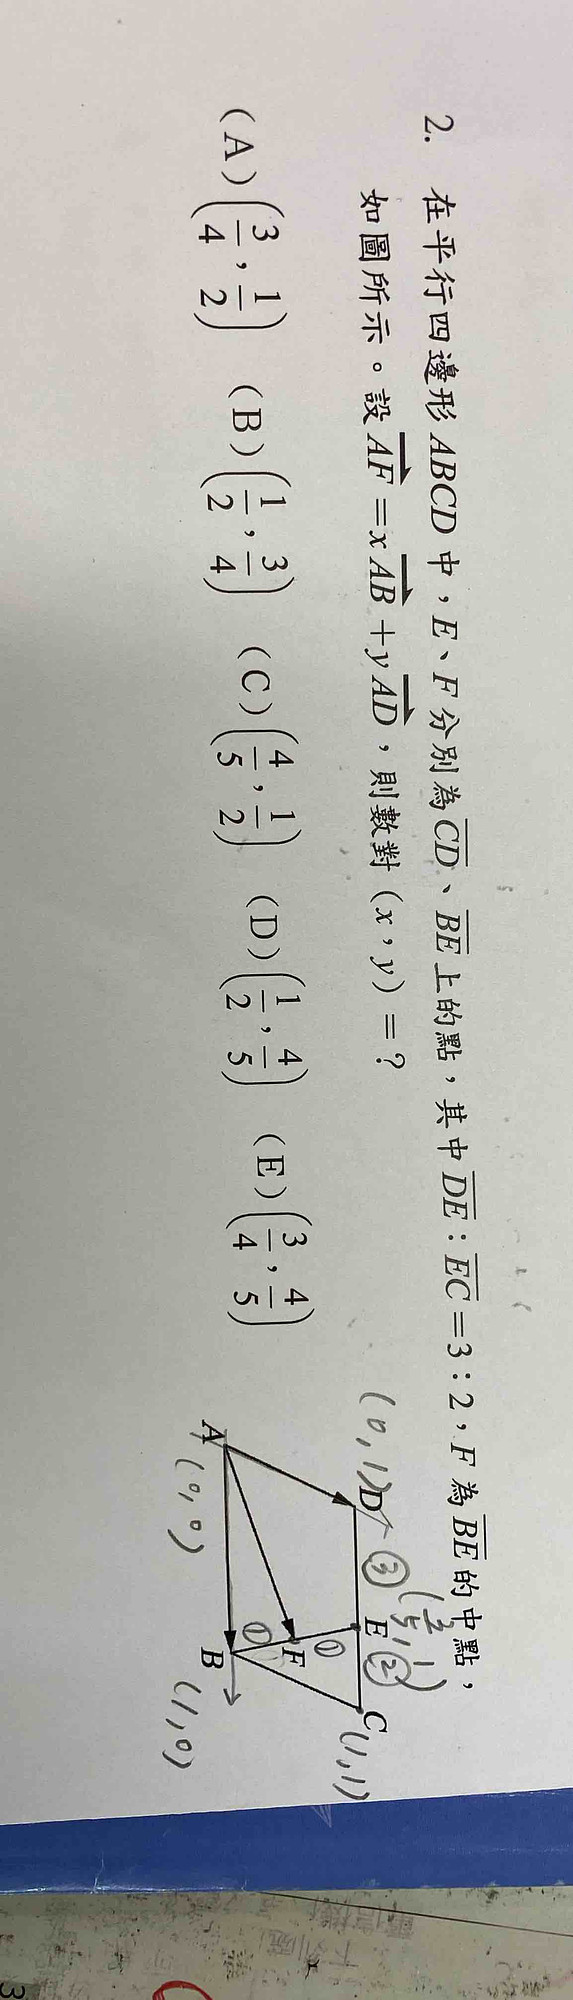 2. 在平行四邊形 ABCD 中，E、F 分別為 CD、BE 上的點，其中 DE：EC＝3：2，F 為 BE 的中點，
如圖所示。設 AF＝xAB＋yAD，則數對 (x，y)＝？
(A) (3/4, 1/2) (B) (1/2, 3/4) (C) (4/5, 1/2) (D) (1/2, 4/5) (E) (3/4, 4/5)
(0,1) D ③ E (3/5,1) ② C (1,1)
① F ①
A (0,0) B (1,0)
3